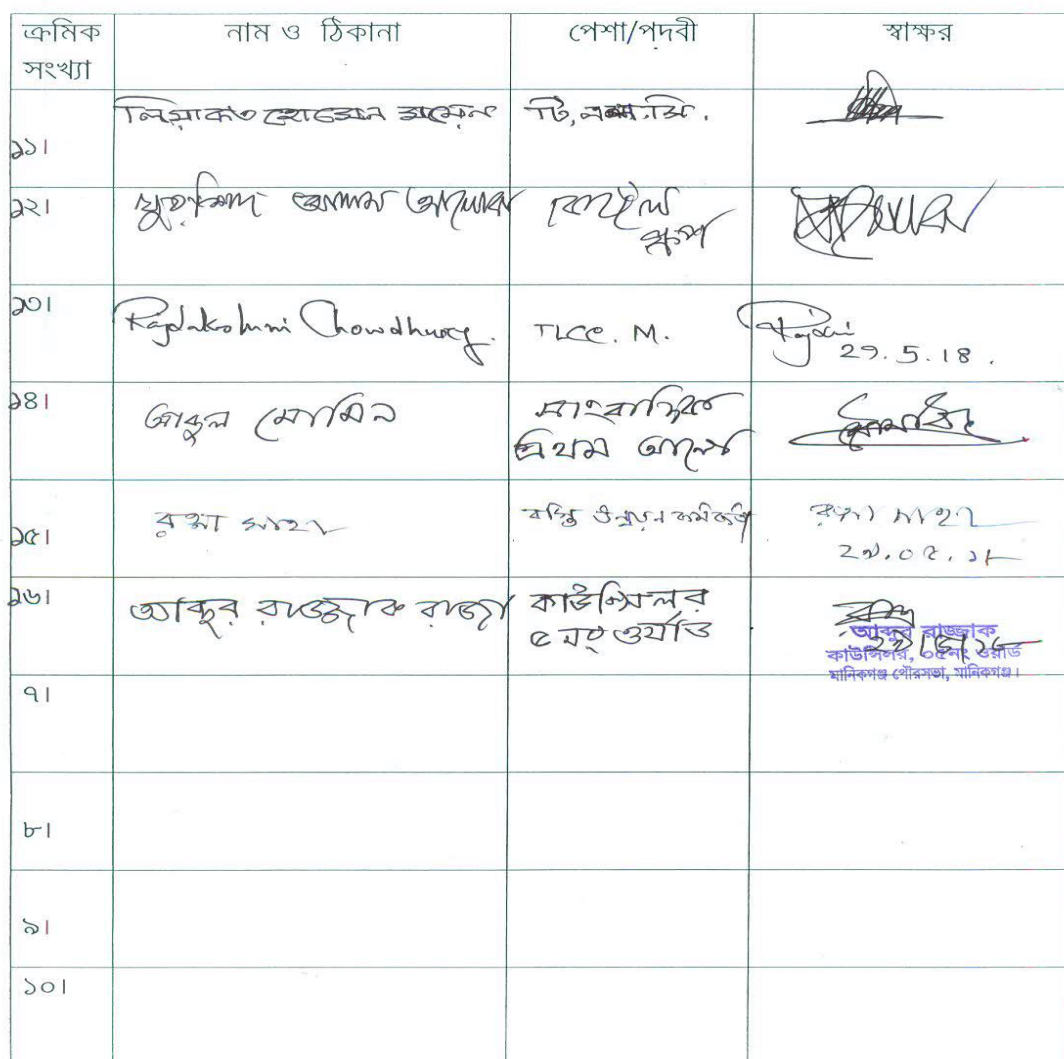 ক্রমিক সংখ্যা
নাম ও ঠিকানা
পেশা/পদবী
স্বাক্ষর
১১।
লিয়াকত হোসেন
টি,এল.সি.
১২।
খুরশিদ আলম
১৩।
Rajlakshmi Chowdhury.
TLCC. M.
29.5.18.
১৪।
আবুল মোমিন
সাংবাদিক
প্রথম আলো
১৫।
রত্না সাহা
বস্তি উন্নয়ন কর্মকর্তা
রত্না সাহা
২৯.০৫.১৮
১৬।
আব্দুর রাজ্জাক রাজা
কাউন্সিলর
৫ নং ওর্যাড
আব্দুর রাজ্জাক
কাউন্সিলর, ০৫নং ওয়ার্ড
মানিকগঞ্জ পৌরসভা, মানিকগঞ্জ।
৭।
৮।
৯।
১০।